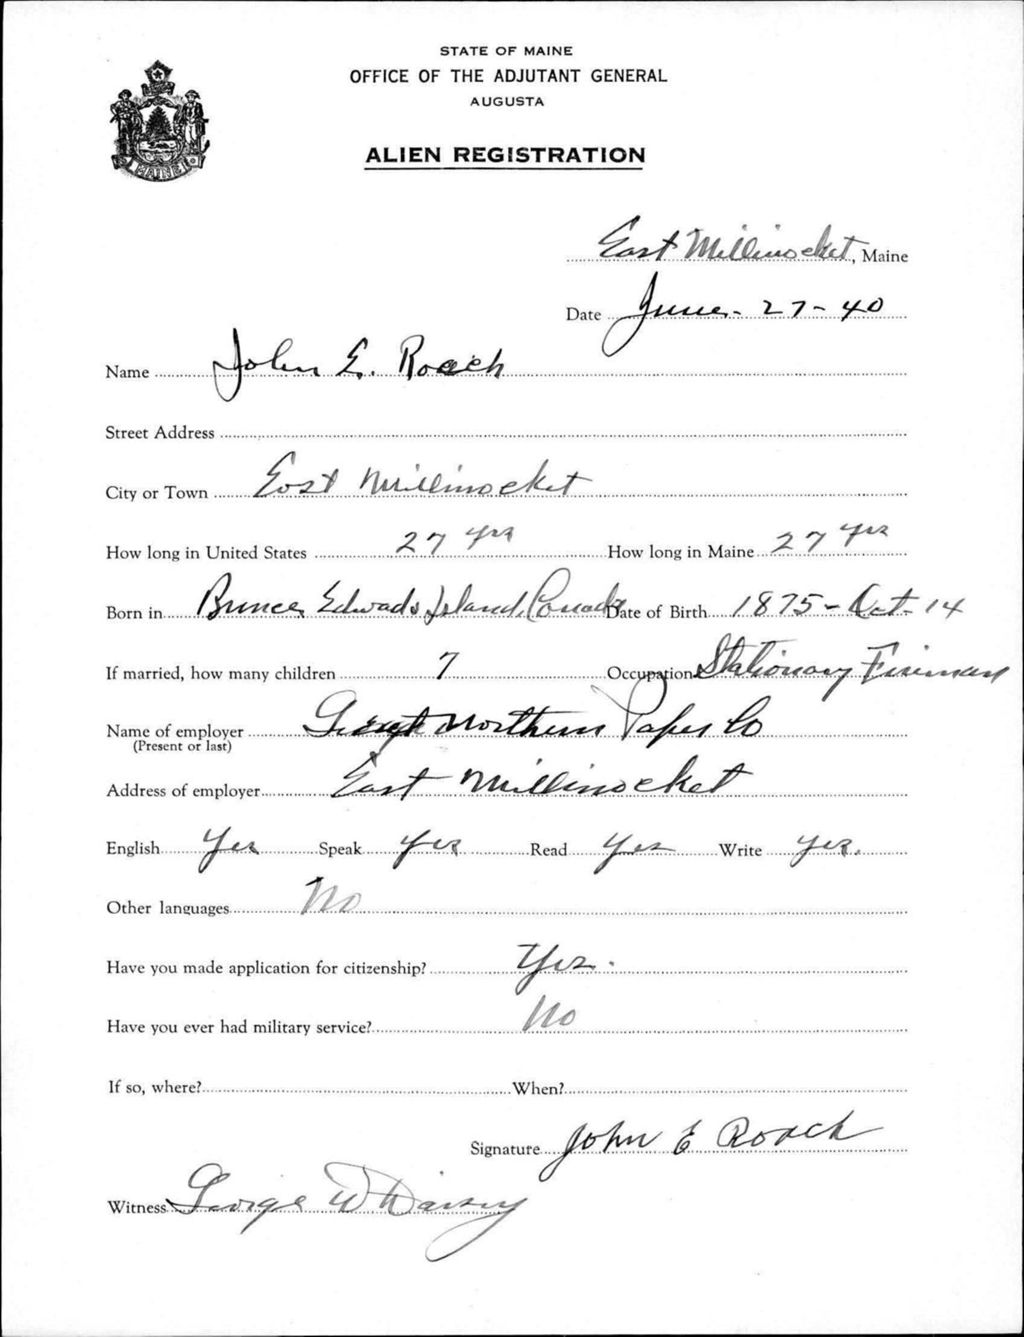 STATE OF MAINE
OFFICE OF THE ADJUTANT GENERAL
AUGUSTA
ALIEN REGISTRATION
MAINE
East Millinocket, Maine
Date June - 27 - 40
Name John E. Roach
Street Address
City or Town East Millinocket
How long in United States 27 yrs How long in Maine 27 yrs
Born in Prince Edwads Island, Canada Date of Birth 1875 - Oct - 14
If married, how many children 7 Occupation Stationary Fireman
Name of employer Great Northern Paper Co
(Present or last)
Address of employer East Millinocket
English Yes Speak Yes Read Yes Write Yes.
Other languages No
Have you made application for citizenship? Yes.
Have you ever had military service? No
If so, where? When?
Signature John E Roach
Witness George W